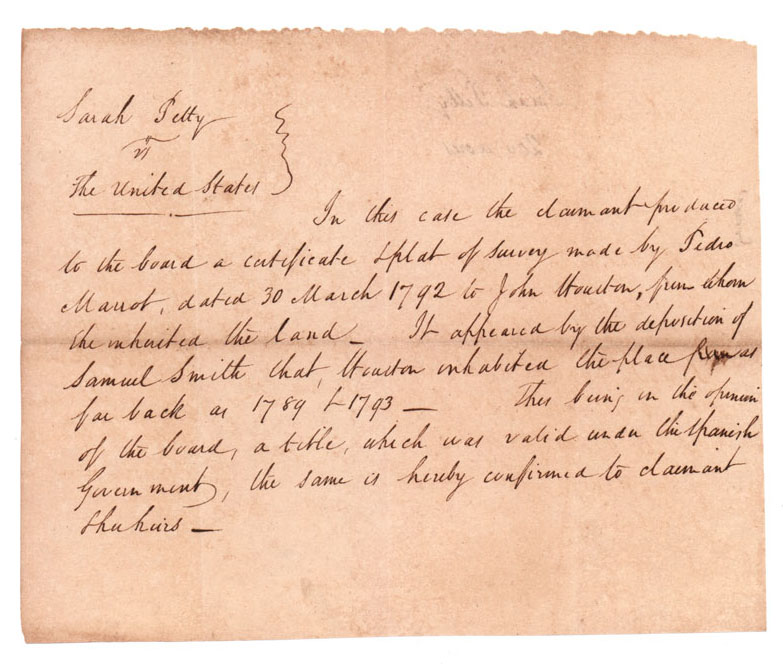 Sarah Petty
vs
The United States
In this case the claimant produced
to the board a certificate & plat of survey made by Pedro
Marrot, dated 30 March 1792 to John Houston, from whom
she inherited the land_ It appeared by the deposition of
Samuel Smith that, Houston inhabited the place as
far back as 1789 & 1793 _ This being in the opinion
of the board, a title, which was valid under the Spanish
Government, the same is hereby confirmed to claimant
& her heirs _